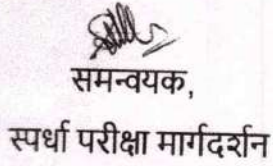 समन्वयक,
स्पर्धा परीक्षा मार्गदर्शन